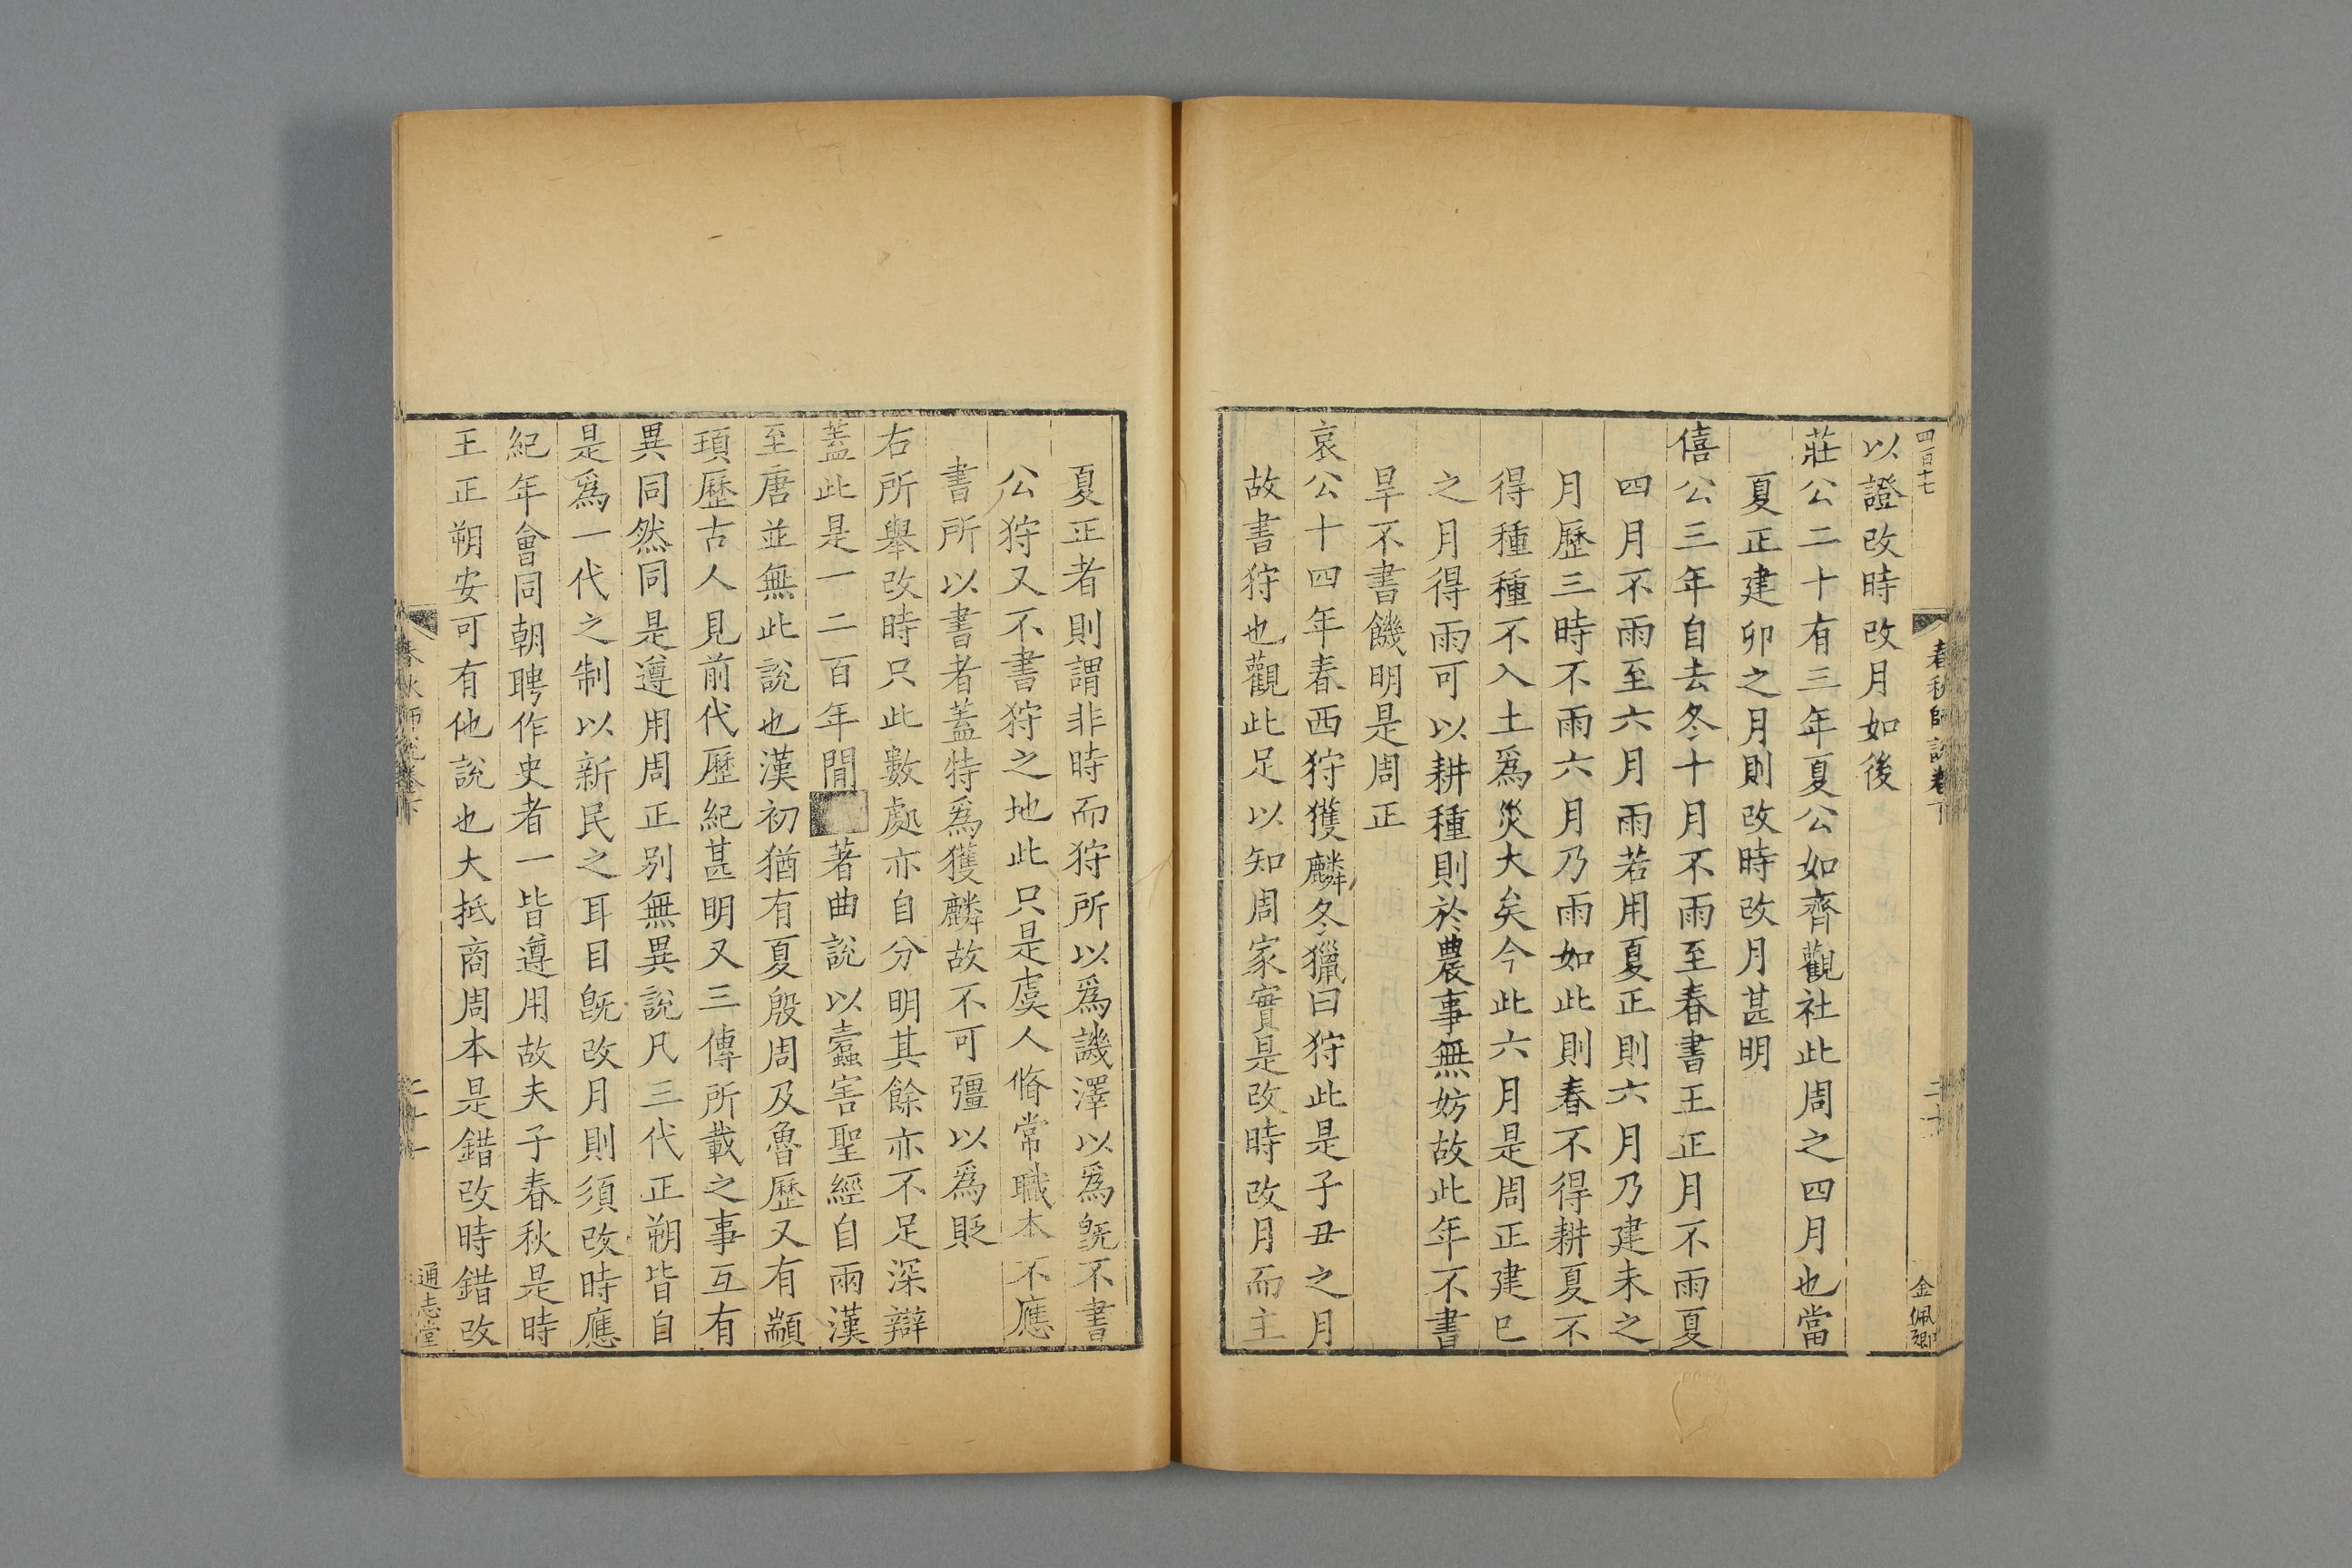 四百十七
春秋師說卷下
二十
金佩卿
以證改時改月如後
莊公二十有三年夏公如齊觀社此周之四月也當
夏正建卯之月則改時改月甚明
僖公三年自去冬十月不雨至春書王正月不雨夏
四月不雨至六月雨若用夏正則六月乃建未之
月歷三時不雨六月乃雨如此則春不得耕夏不
得種種不入土爲災大矣今此六月是周正建巳
之月得雨可以耕種則於農事無妨故此年不書
旱不書饑明是周正
哀公十四年春西狩獲麟冬獵曰狩此是子丑之月
故書狩也觀此足以知周家實是改時改月而主
夏正者則謂非時而狩所以爲譏澤以爲旣不書
公狩又不書狩之地此只是虞人脩常職本不應
書所以書者蓋特爲獲麟故不可彊以爲貶
右所舉改時只此數處亦自分明其餘亦不足深辯
蓋此是一二百年閒著曲說以蠹害聖經自兩漢
至唐並無此說也漢初猶有夏殷周及魯歷又有顓
頊歷古人見前代歷紀甚明又三傳所載之事互有
異同然同是遵用周正别無異說凡三代正朔皆自
是爲一代之制以新民之耳目旣改月則須改時應
紀年會同朝聘作史者一皆遵用故夫子春秋是時
王正朔安可有他說也大抵商周本是錯改時錯改
春秋師說卷下
二十一
通志堂